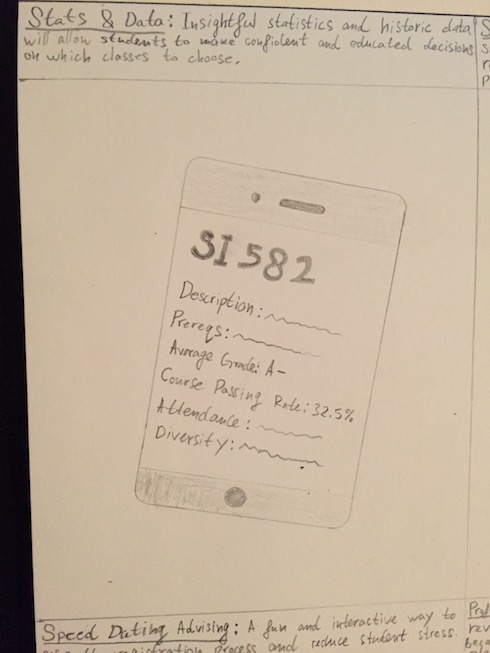 Stats & Data: Insightful statistics and historic data
will allow students to make confident and educated decisions
on which classes to choose.
SI 582
Description:
Prereqs:
Average Grade: A-
Course Passing Rate: 32.5%
Attendance:
Diversity:
Speed Dating Advising: A fun and interactive way to
registration process and reduce student stress.